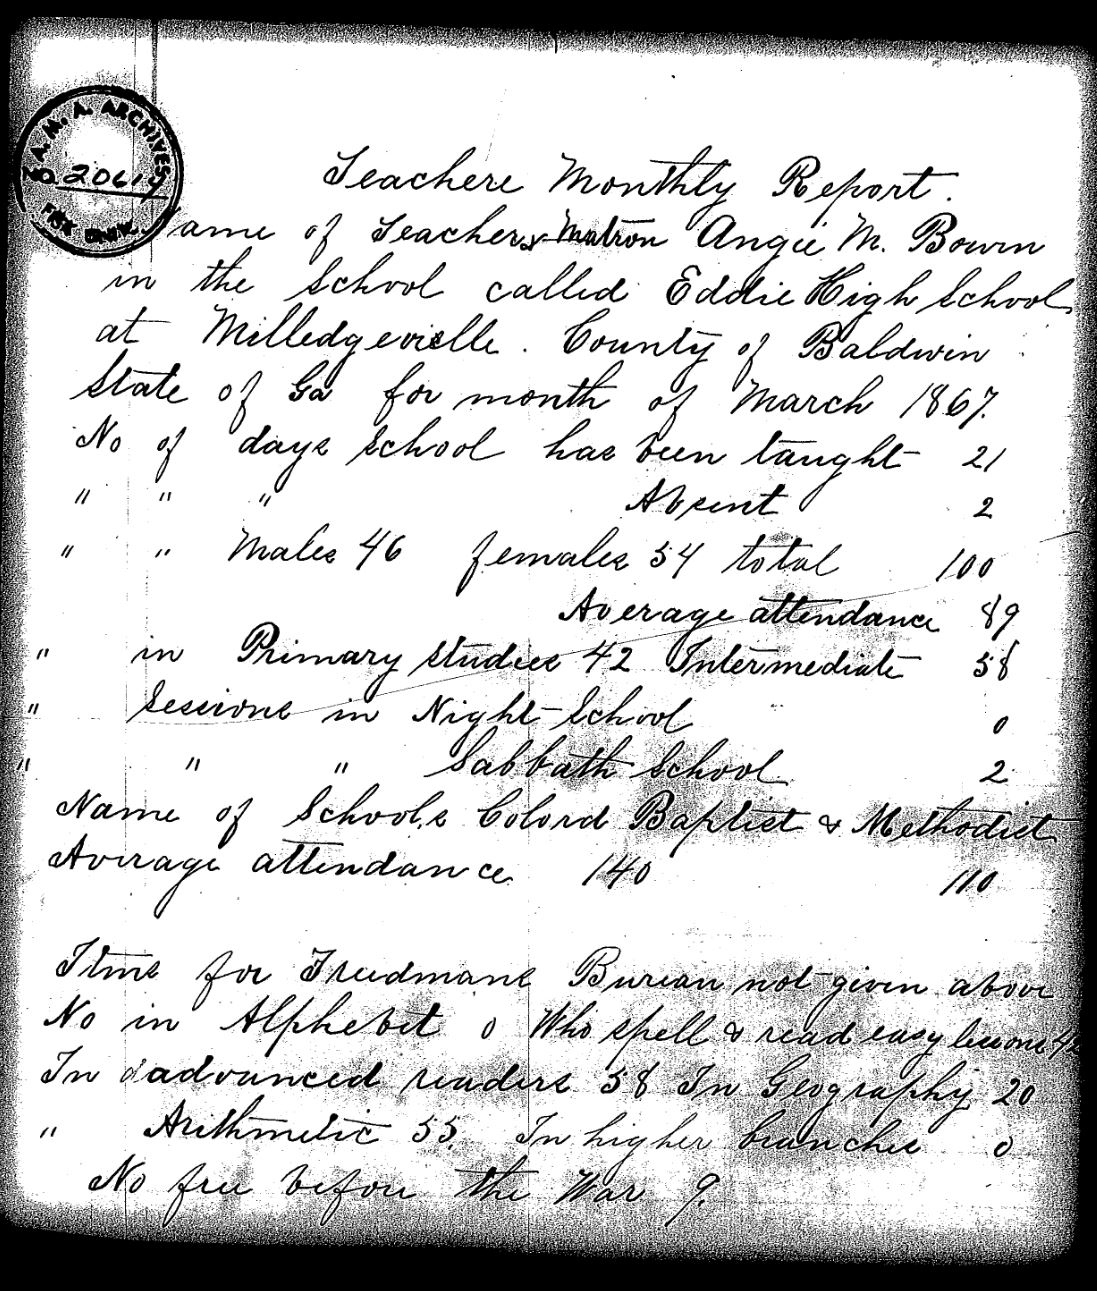 A. M. A. ARCHIVES
No. 20614
FISK UNIV.
Teachers Monthly Report.
Name of Teacher & Matron Angie M. Bowen
in the School called Eddie High School
at Milledgeville. County of Baldwin
State of Ga for month of March 1867.
No of days School has been taught 21
" " " Absent 2
" " Males 46 females 54 total 100
Average attendance 89
" in Primary studies 42 Intermediate 58
" Sessions in Night-School 0
" " " Sabbath School 2
Name of Schools Colord Baptist & Methodist
Average attendance 140 110
Items for Freedmans Bureau not given above
No in Alphebet 0 Who spell & read easy lessons 42
In advanced readers 58 In Geography 20
" Arithmetic 55. In higher branches 0
No free before the War 9.